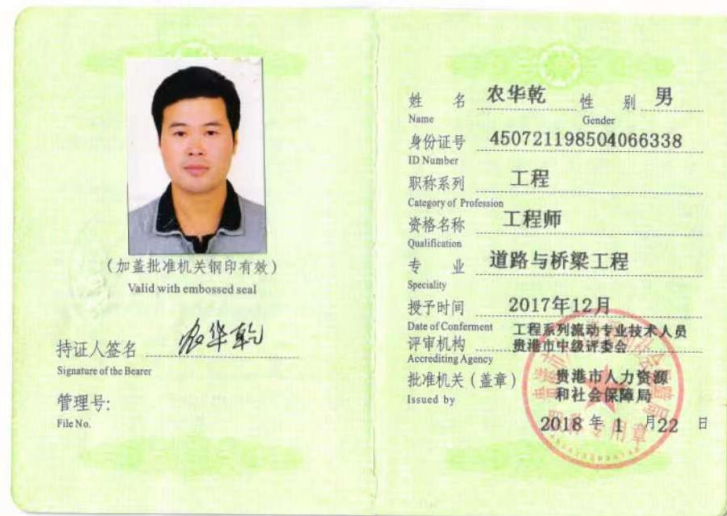 (加盖批准机关钢印有效)
Valid with embossed seal
持证人签名 农华乾
Signature of the Bearer
管理号:
File No.
姓 名 农华乾 性 别 男
Name Gender
身份证号 450721198504066338
ID Number
职称系列 工程
Category of Profession
资格名称 工程师
Qualification
专 业 道路与桥梁工程
Speciality
授予时间 2017年12月
Date of Conferment 工程系列流动专业技术人员
评审机构 贵港市中级评委会
Accrediting Agency
批准机关(盖章) 贵港市人力资源
Issued by 和社会保障局
2018 年 1 月22 日